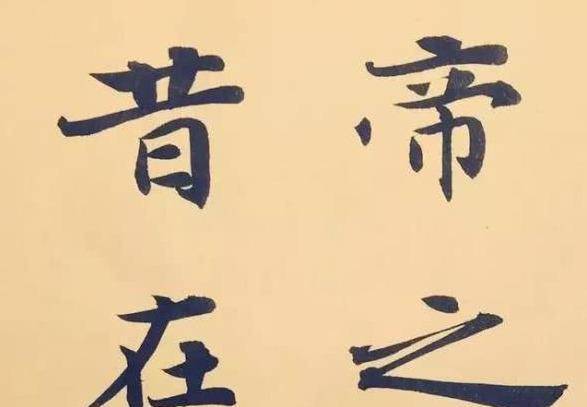 帝之
昔在